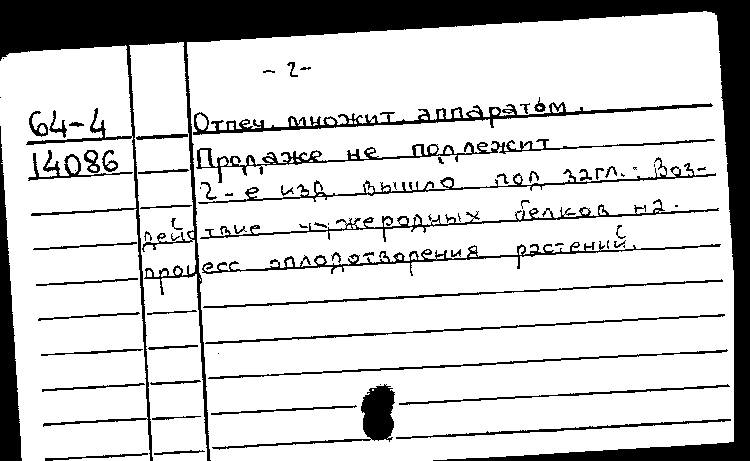 - 2 -
64-4 Отпеч. множит. аппаратом.
14086 Продаже не подлежит.
2-е изд. вышло под загл.: Воз-
действие чужеродных белков на
процесс оплодотворения растений.